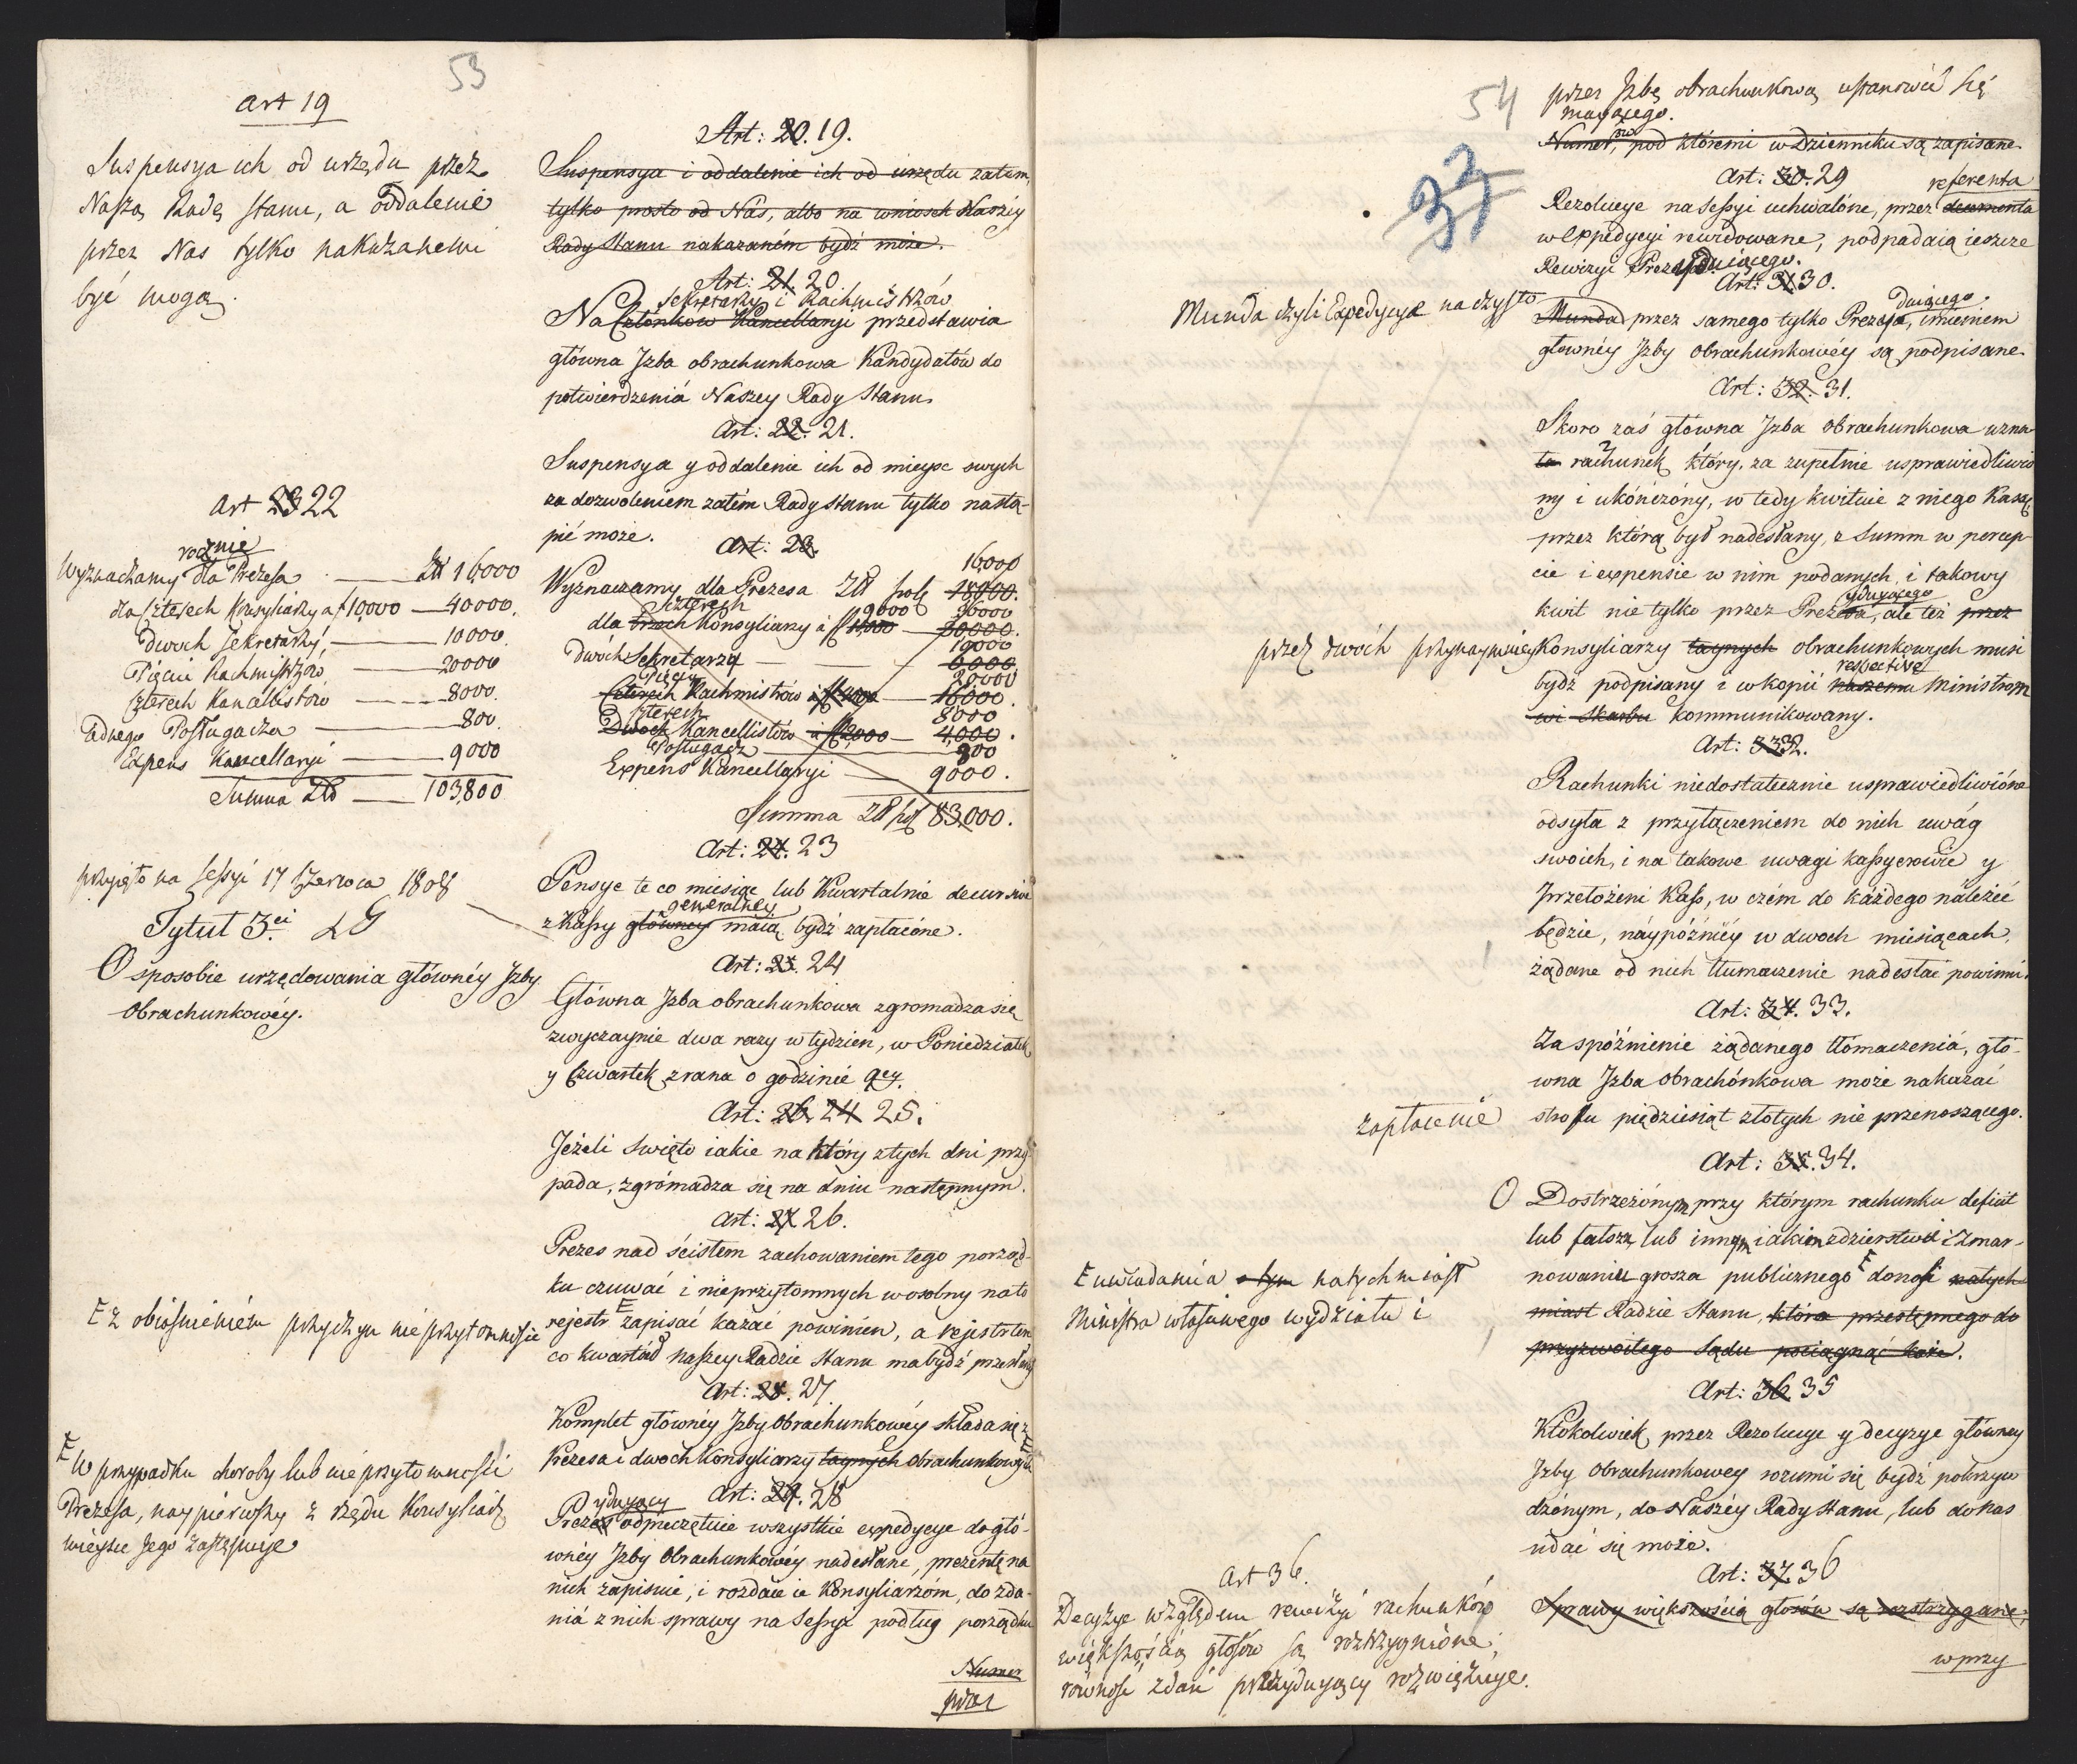 53
art 19
Suspensya ich od urzędu przez
Naszą Radę stanu, a oddalenie
przez Nas tylko nakazanemi
być mogą.
art 23 22
rocznie
Wyznaczamy dla Prezesa — Zł 16000
dla czterech Konsyliarzy a f 10,000 — 40000.
Dwoch Sekretarzy, — 10000.
Pięciu Rachmistrzów — 20000
czterech Kancellistow — 8000.
Jednego Posługacza — 800.
Expens Kancellaryi — 9000
Summa Zło — 103,800
przyięto na Sessyi 17 Czerwca 1808
Tytuł 3ci
O sposobie urzędowania głównéy Jzby
Obrachunkowéy.
E z obiaśnieniem przyczyn nieprzytomności
E W przypadku choroby lub nieprzytomności
Prezesa, naypierwszy z rzędu Konsyliarz
mieysce Jego zastępuje
Art: 20. 19.
Suspensya i oddalenie ich od urzędu zatem,
tylko prosto od Nas, albo na wniosek Naszéy
Rady Stanu nakazaném bydź może.
Art: 21. 20
Sekretarzy i Rachmistrzów
Na Członków Kancellaryi przedstawia
główna Jzba obrachunkowa Kandydatów do
potwierdzeniá Naszey Rady Stanu.
Art: 22. 21.
Suspensya y oddalenie ich od mieysc swych
za dozwoleniem zatém Rady Stanu tylko nastą-
pić może.
Art: 23.
16,000
Wyznaczamy dla Prezesa Zło pols 18000.
czterech 9000 36000
dla trzech Konsyliarzy á f 10,000 — 30,000.
10000
Dwóch Sekretarzy — 6000
Pięciu 20000
czterech Rachmistrzów á f 4000 — 16000.
czterech 8000
Dwoch Kancellistów á f 2,000 — 4,000.
Posługacz — 800
Expens Kancellaryi — 9000.
Summa Zło pol 83,000.
Art: 24. 23
Pensye te co miesiąc lub Kwartalnie decursive
generalney
z Kassy główney maią bydź zapłacóne.
Art: 25. 24
Główna Jzba obrachunkowa zgromadza się
zwyczaynie dwa razy w tydzien, w Poniedziałek
y Czwartek z rana o godzinie 9ey.
Art: 26. 24 25.
Jeżeli święto iakie na który z tych dni przy-
pada, zgromadza się na dniu następnym.
Art: 27. 26.
Prezes nad ścisłem zachowaniem tego porząd-
ku czuwać i nieprzytomnych w osobny na to
rejestr E zapisać kazać powinien, a rejestr ten
co kwartał naszey Radzie Stanu ma bydź przesłany
Art: 28. 27
Komplet główney Jzby Obrachunkowéy składa się z
Prezesa i dwoch Konsyliarzy taynych obrachunkowych E
ydujący Art: 29. 28
Prezes odpieczętuie wszystkie expedycye do głó-
wnéy Jzby Obrachunkowéy nadesłane, prezentę na
nich zapisuie, i rozdaie ie Konsyliarzóm, do zda-
niá z nich sprawy na Sessyi podług porządku
Numer
przez
54
przez Jzbę obrachunkową ustanowić się
maiącego.
Numerów, pod któremi w Dzienniku są zapisane.
Art: 30. 29
referenta
Rezolucye na Sessyi uchwalóne, przez decernenta
w expedycyi rewidowane, podpadaią ieszcze
Rewizyi Prezydującego.
Art: 31 30.
Munda czyli Expedycye na czysto
dującego
Munda przez samego tylko Prezesa, imieniem
głownéy Jzby Obrachunkowéy są podpisane.
Art: 32. 31.
Skoro zaś główna Jzba Obrachunkowa uzna-
ła rachunek który, za zupełnie usprawiedliwio-
ny i ukończóny, w tedy kwituie z niego Kasę,
przez którą był nadesłany, z Summ w percep-
cie i expensie w nim podanych, i takowy
ydującego
kwit nie tylko przez Prezesa, ale też przez
przez dwóch przynaymniey Konsyliarzy taynych obrachunkowych musi
respective
bydź podpisany i w kopii naszemu Ministrom
wi Skarbu kommunikowany.
Art: 33 32.
Rachunki niedostatecznie usprawiedliwióne
odsyła z przyłączeniem do nich uwág
swoich, i na takowe uwagi kassyerowie y
Przełożeni Kass, w czém do káżdego náleżéć
będzie, náypóźniéy w dwoch miesiącach,
żądane od nich tłumaczenie nadesłać powinni.
Art: 34. 33.
Za spóźnienie żądanego tłómaczeniá, głó-
wna Jzba Obrachónkowa może nakazać
zapłacenie
strofu piędziesiąt złotych nie przenoszącego.
Art: 35. 34.
O Dostrzeżónym przy którym rachunku deficit
lub fałszu, lub innym iakiem zdzierstwie i zmar-
nowaniu grosza publicznego E donosi natych-
miast Radzie Stanu, która przestępnego do
przyzwoitego Sądu pociągnąć każe.
E uwiadamia o tym natychmiast
Ministra właściwego wydziału i
Art: 36. 35
Ktokolwiek przez Rezolucye y decyzye główney
Jzby Obrachunkowey rozumi się bydź pokrzyw-
dzónym, do Naszéy Rady Stanu, lub do Nas
udać się może.
Art: 37. 36
Sprawy większością głosów są rozstrzygane,
w przy
art 36.
Decyzye względem rewizyi rachunków
większością głosów są rozstrzygnióne;
równość zdań prezydujący rozwięzuje.